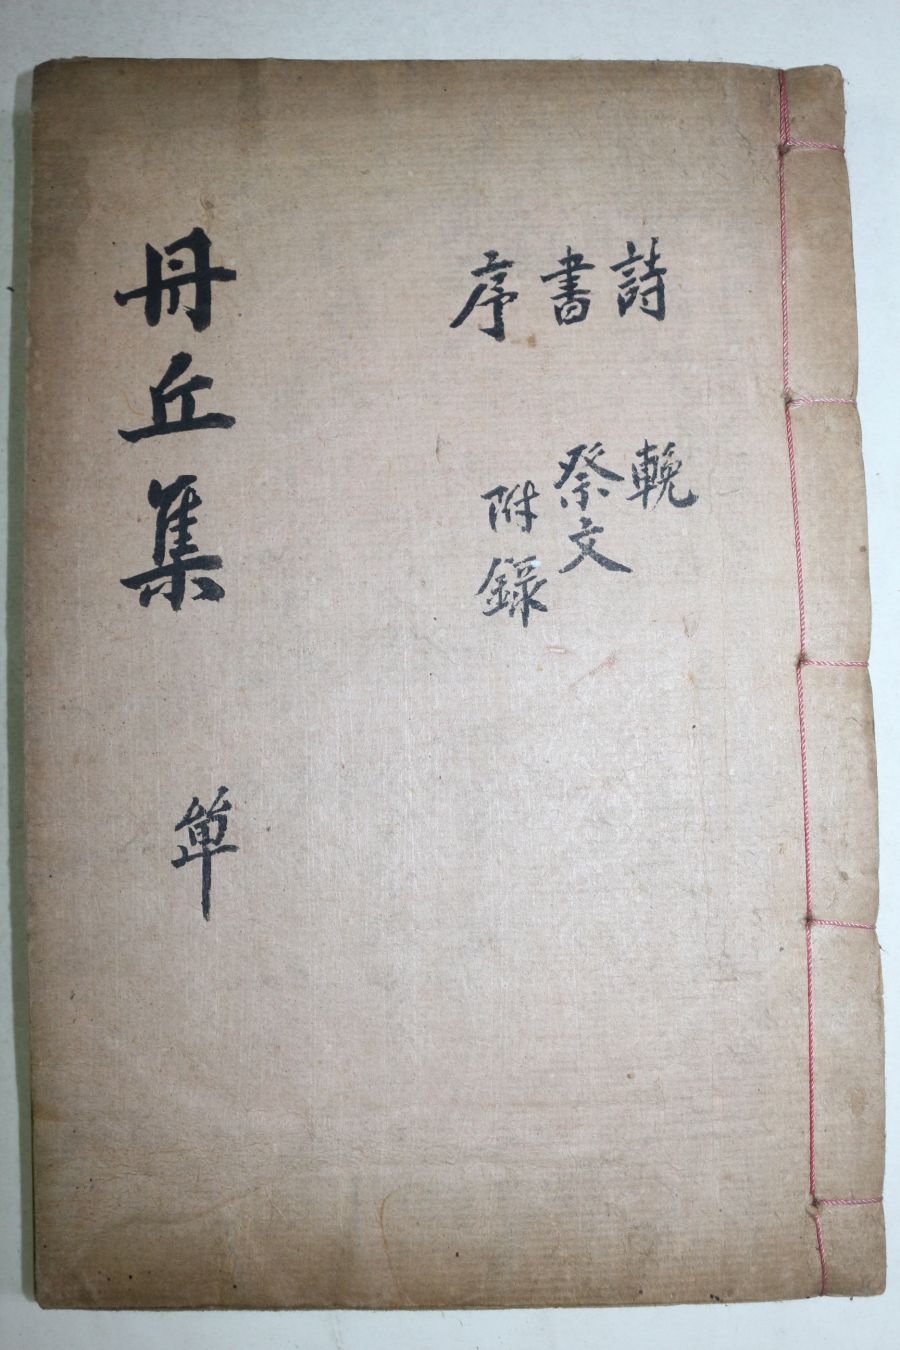 詩
書
序
輓
祭文
附錄
丹丘集 單